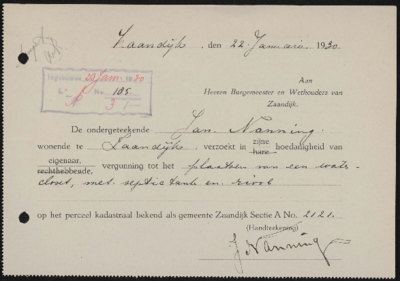 Zaandijk, den 22 Januarie 1930
Ingekomen 29 Jan. 1930
Lr. No. 105
A 31
Aan
Heeren Burgemeester en Wethouders van
Zaandijk.
De ondergeteekende Jan Nanning.
wonende te Zaandijk, verzoekt in zijne hare hoedanigheid van
eigenaar, rechthebbende, vergunning tot het plaatsen van een water-
closet, met septictank en riool
op het perceel kadastraal bekend als gemeente Zaandijk Sectie A No. 2121.
(Handteekening)
J Nanning